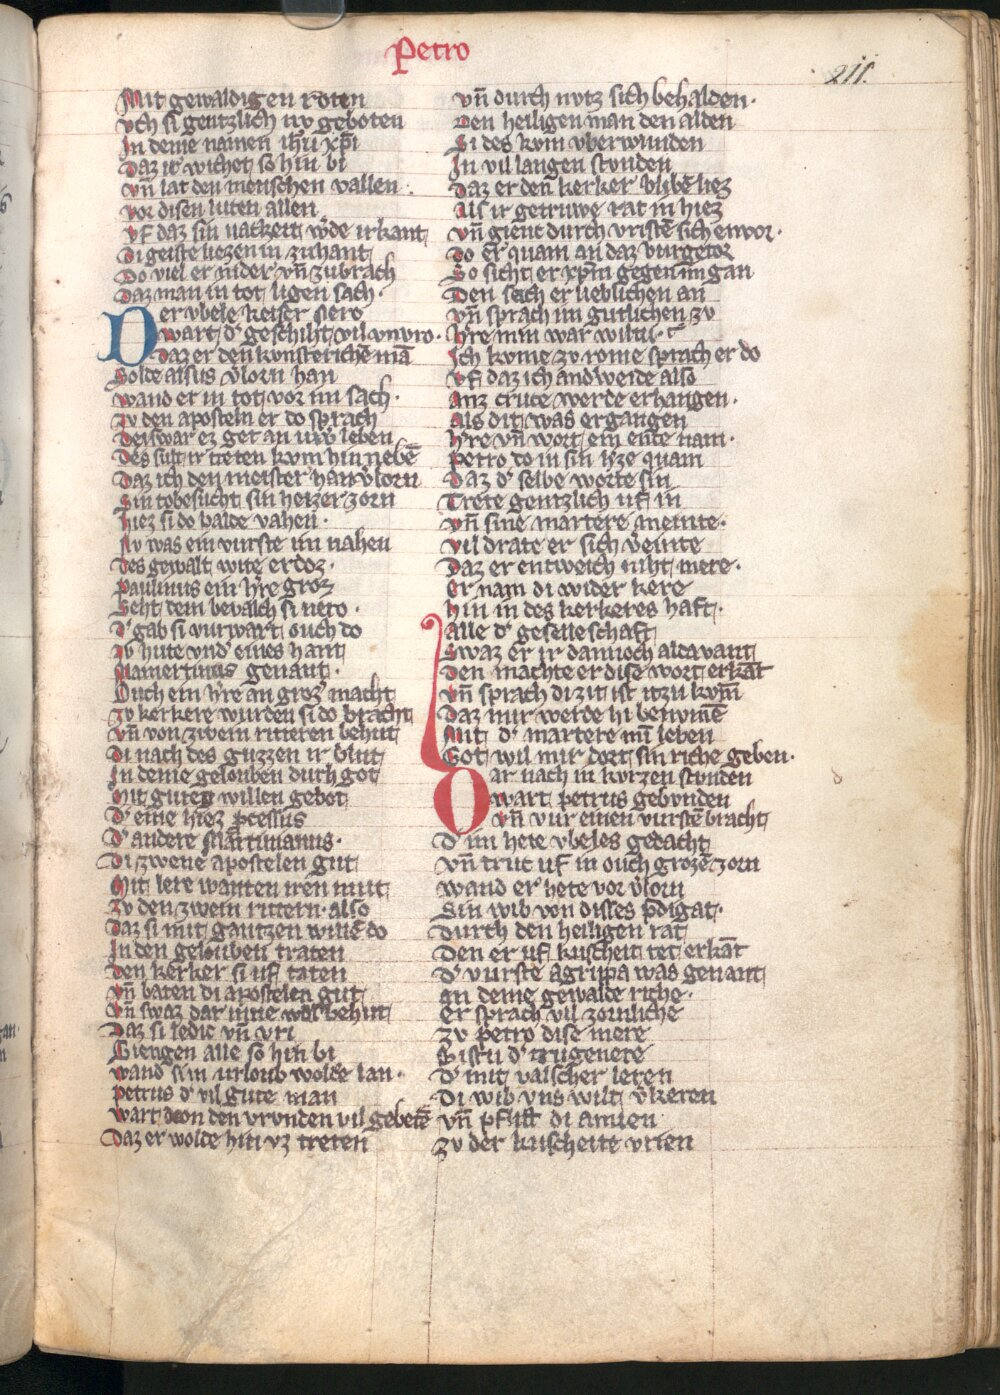 Petro
211.
Mit gewaldigen roten
vch si gentzlich nv geboten
In deme namen ih'u xp̄i
Daz ir wichet so hin bi
vn̄ lat den menschen vallen.
vor disen luten allen
vf daz sin nackeit w'de irkant
di geiste liezen in zuhant
Do viel er nider vn̄ zubrach
Daz man in tot ligen sach.
Der vbele keiser Nero
wart d' geschiht vil vnvro.
Daz er den kvnsterichē mā
Solde alsus v'lorn han
wand er in tot vor im sach.
zv den aposteln er do sprach
deiswar ez get an uw' leben
des sult ir treten kvm hin nebē
Daz ich den meister han v'lorn
Sin tobesucht sin heizer zorn
hiez si do balde vahen.
Nv was ein vurste im nahen
des gewalt wite erdoz.
paulinus ein h're groz
Seht dem bevalch si nero.
d' gab si vurwart ouch do
In hute vnd' eines hant
Mamertinus genant.
Ouch ein h're an groz' macht
zv kerkere wurden si do bracht
vn̄ von zwein ritteren behut
di nach des guzzen ir blut
In deme gelouben durch got
Mit guten willen gebot
d' eine hiez p̄cessus
d' andere Martinianus.
Di zwene apostelen gut
Mit lere wanten iren mut
zv den zwein rittern. also
Daz si mit gantzen willē do
In den gelouben traten
den kerker si uf taten
vn̄ baten di apostelen gut
vn̄ swaz dar inne was behut
Daz si ledic vn̄ vri
Giengen alle so hin bi
wand si in urloub wolde lan.
petrus d' vil gute man
wart von den vrvnden vil gebetē
Daz er wolde hin vz treten
vn̄ durch nvtz sich behalden.
Den heiligen man den alden
Si des kvm vberwunden
In vil langen stvnden
Daz er den kerker blibē liez
Als ir getruwe rat in hiez
vn̄ gienc durch vristē sich envor.
do er quam an daz burgetor
So sicht er xp̄m gegen im gan
Den sach er lieblichen an
vn̄ sprach im gutlichen zv
h're min war wiltu.
Ich kvme zv rome sprach er do
vf daz ich andw'eide also
anz cruce werde erhangen.
als dit was ergangen
h're vn̄ wort ein ende nam.
petro do in sin h'ze quam
Daz d' selbe worte sin
Trete gentzlich uf in
vn̄ sine martere meinte.
vil drate er sich v'einte
Daz er entweich niht mere.
er nam di wider kere
hin in des kerkeres haft.
alle d' geselleschaft
Swaz er ir dannoch alda vant
den machte er dise wort erkāt
vn̄ sprach di zit ist itzu kvm̄
Daz mir werde hi benvmē
Mit d' martere min leben
Got wil mir dort sin riche geben.
Dar nach in kvrzen stvnden
wart petrus gebvnden
vn̄ vur einen vurstē bracht
d' im hete vbeles gedacht
vn̄ truc uf in ouch grozē zorn
wand er hete vor v'lorn
Sin wib von disses p̄digat.
durch den heiligen rat
Den er uf kuscheit tet erkāt
d' vurste agrippa was genant
an deme gewalde riche.
er sprach vil zornliche
zv petro dise mere
Bistu d' trugenere
d' mit valscher leren
Di wib vns wilt v'keren
vn̄ di amien
zv der kuscheite vrien